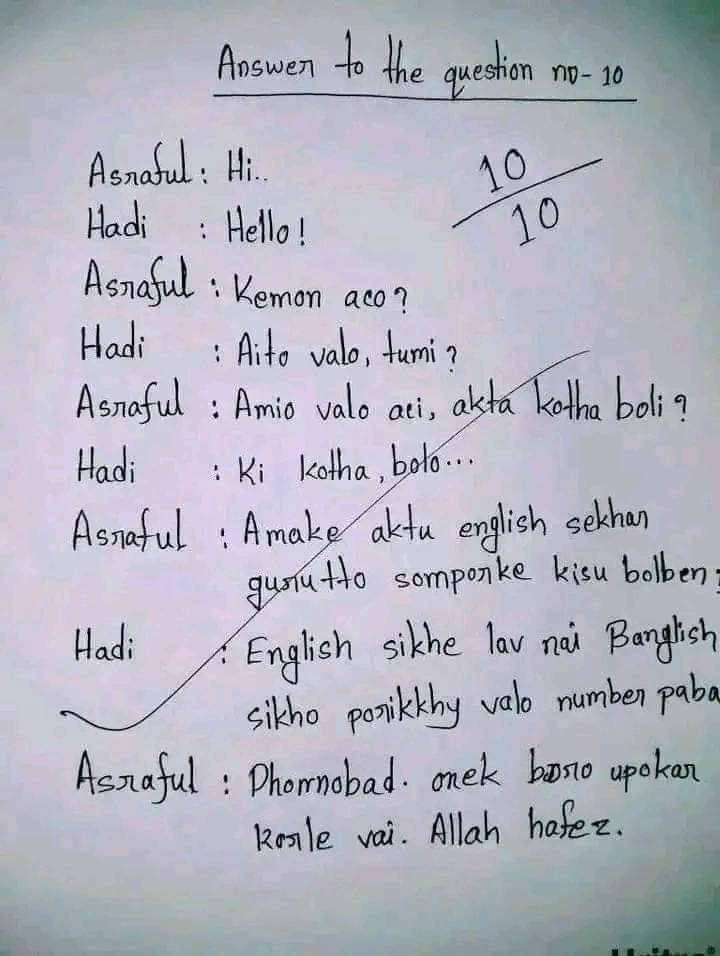 Answer to the question no- 10
10
10
Asraful : Hi..
Hadi : Hello!
Asraful : Kemon aco?
Hadi : Aito valo, tumi?
Asraful : Amio valo aci, akta kotha boli?
Hadi : Ki kotha, bolo...
Asraful : Amake aktu english sekhar
gurutto somporke kisu bolben
Hadi : English sikhe lav nai Banglish
sikho porikkhy valo number paba
Asraful : Dhornobad. onek boro upokar
korle vai. Allah hafez.